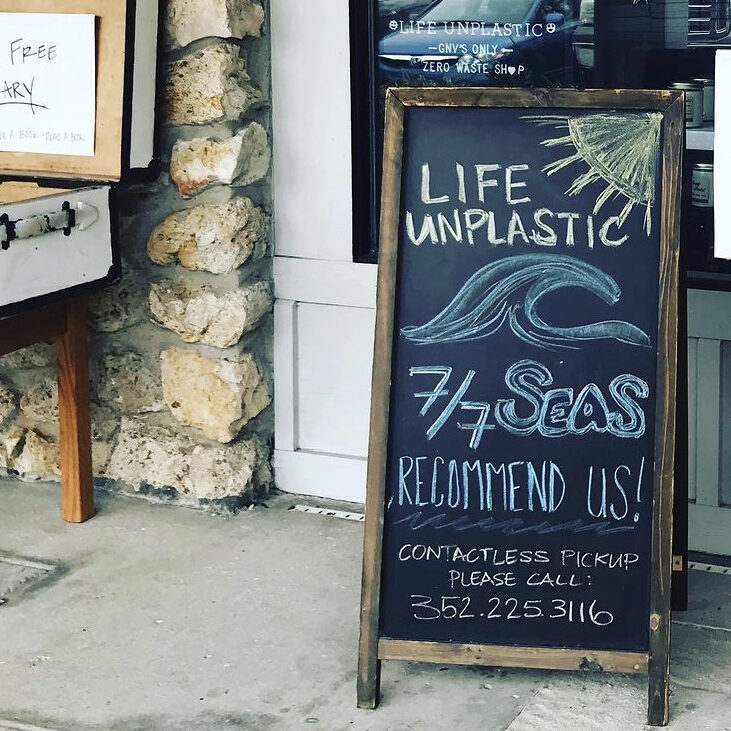 FREE
LIFE UNPLASTIC
GNV'S ONLY
ZERO WASTE SHOP
LIFE
UNPLASTIC
7/7 SEAS
RECOMMEND US!
CONTACTLESS PICKUP
PLEASE CALL:
352.225.3116